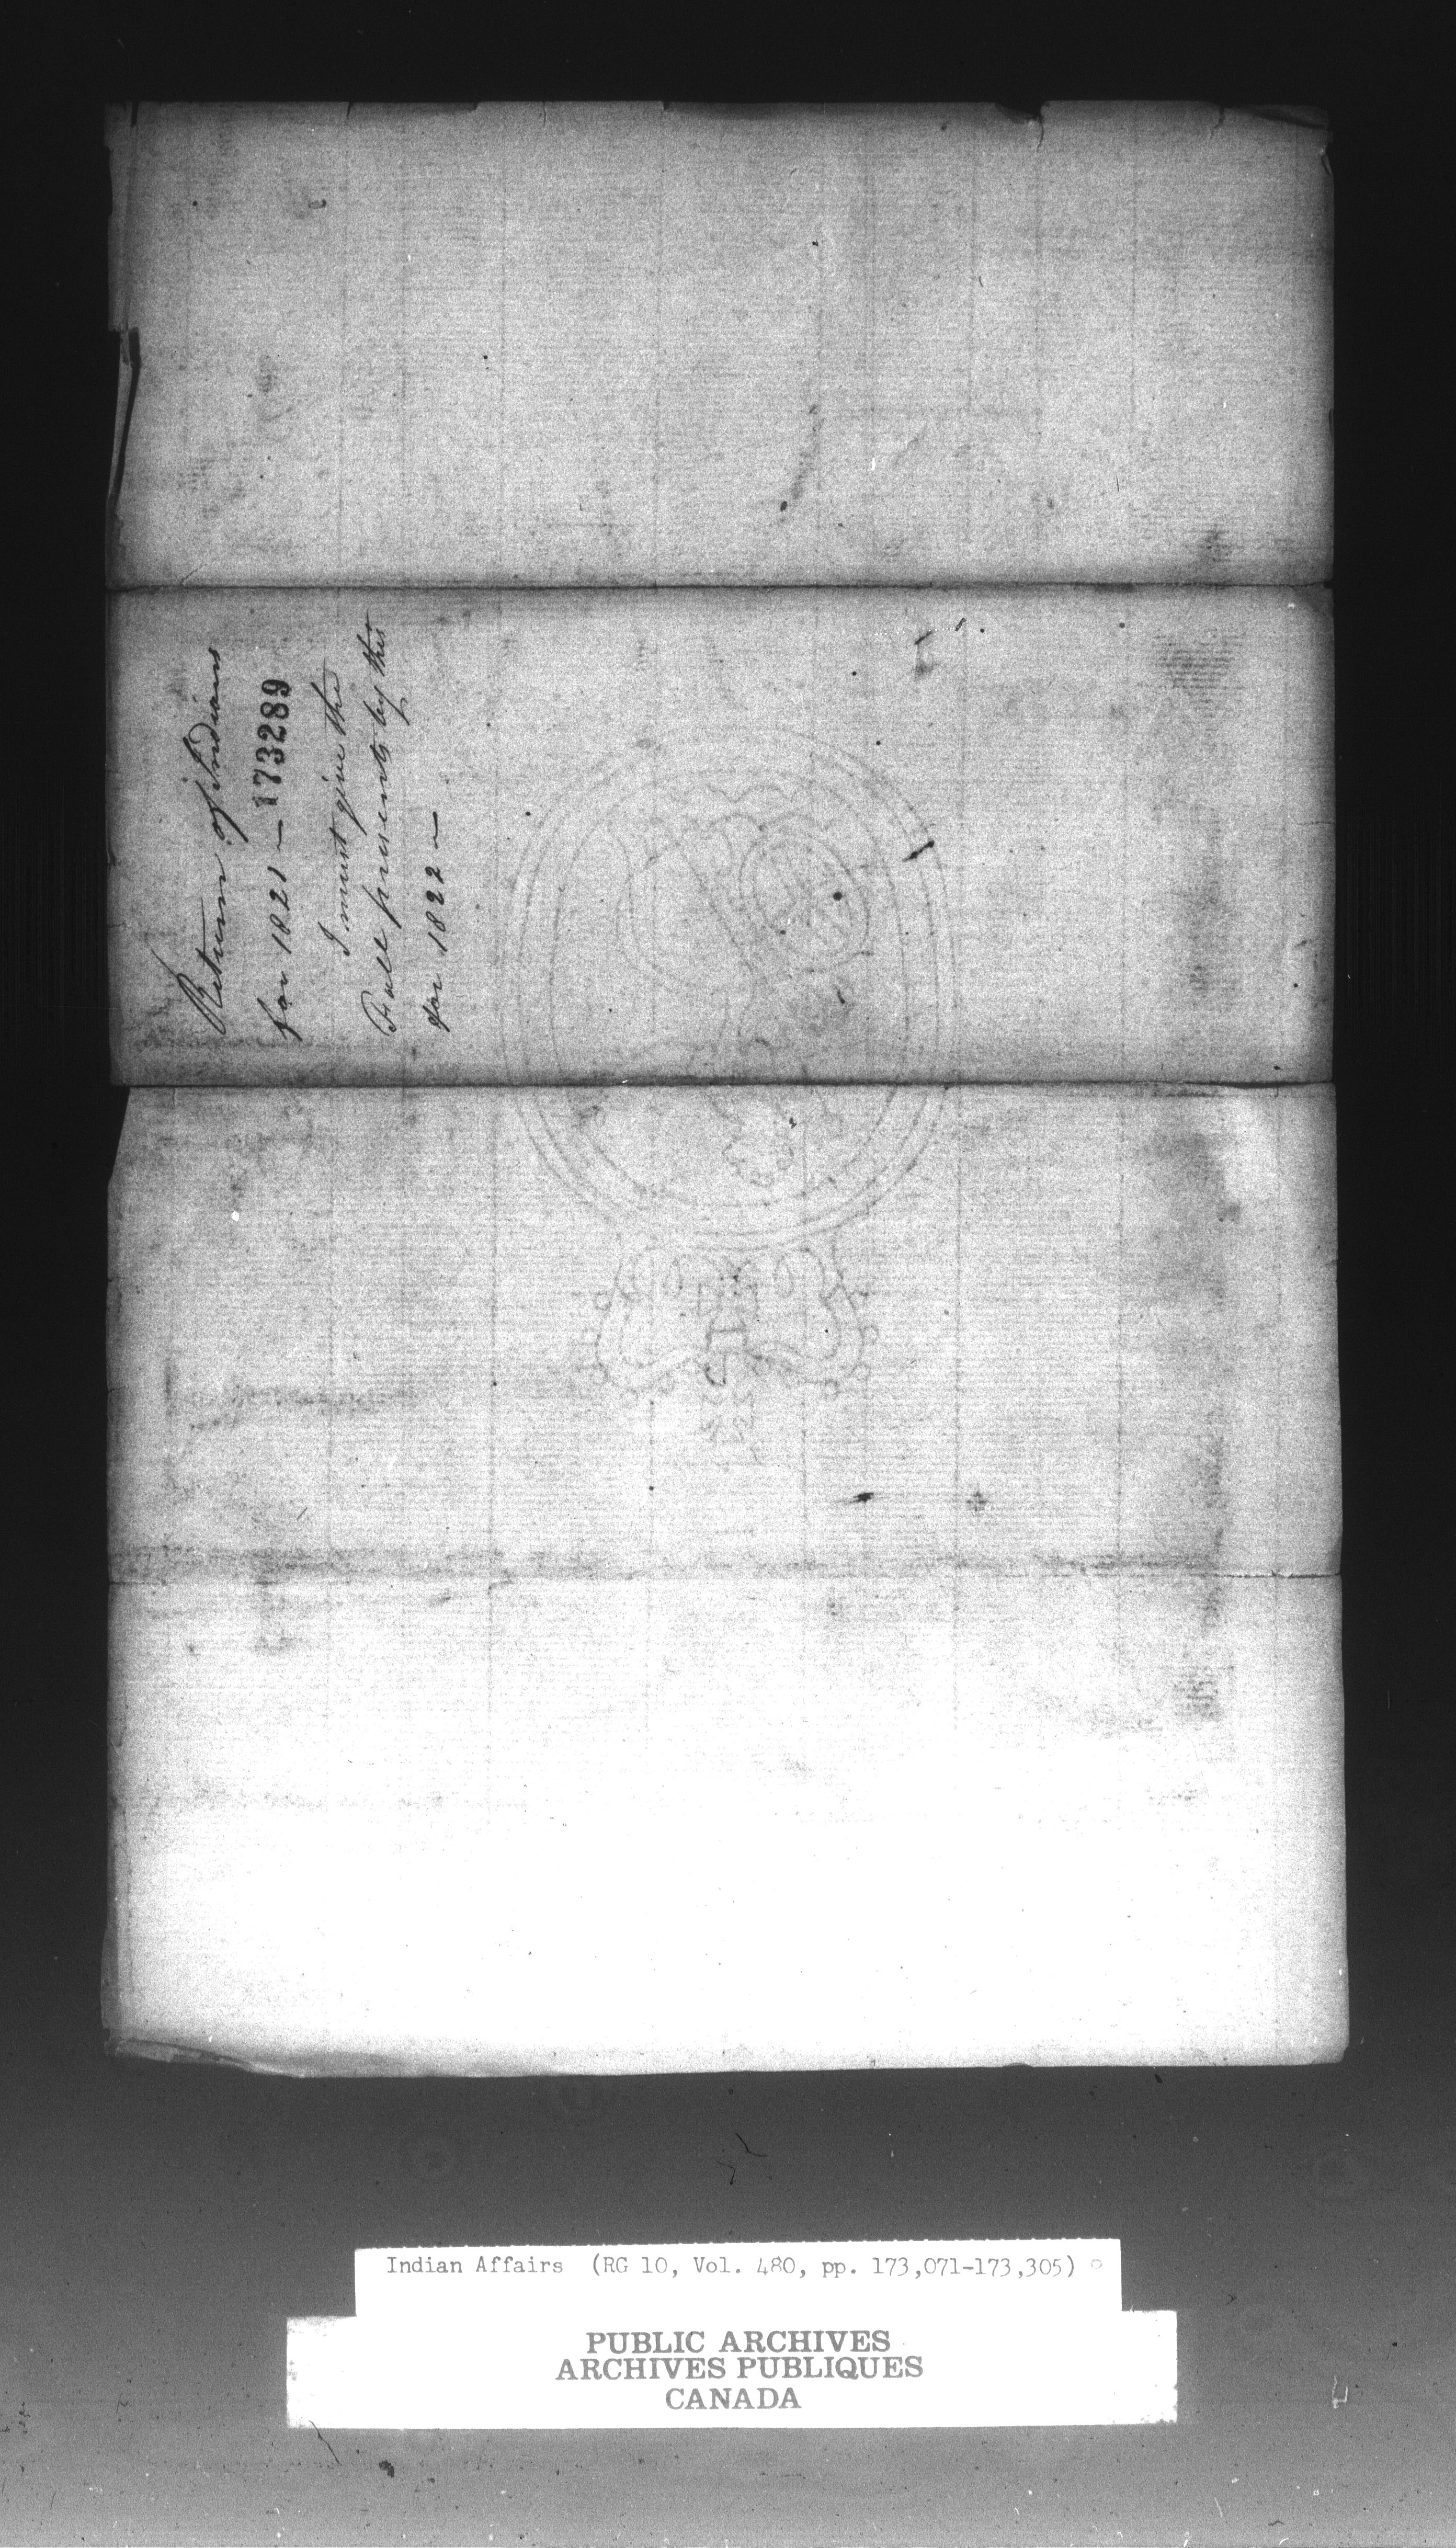 Return of Indians
for 1821 —
173289
I must give the
Fall presents by this
for 1822 —
Indian Affairs (RG 10, Vol. 480, pp. 173,071-173,305)
PUBLIC ARCHIVES
ARCHIVES PUBLIQUES
CANADA